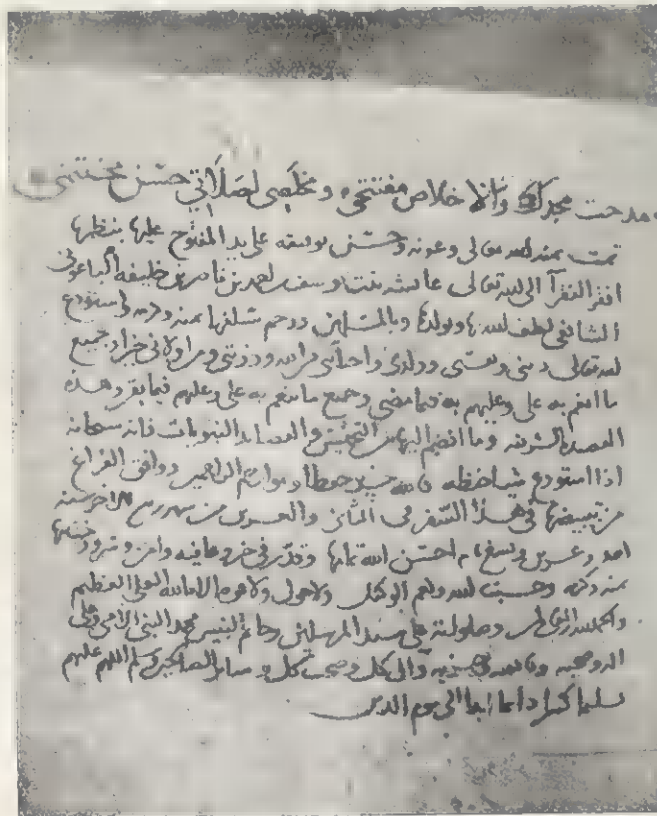 مدحت مجدك والاخلاص مفتتحي ومخلصي لصلاتي حسن مختتمي
تمت بمنه الله تعالى وعونه وحسن توفيقه على يد المفتوح عليها بنظمها
افقر الفقرآ الى الله تعالى عايشه بنت يوسف بن احمد بن ناصر بن خليفه الباعوني
الشافعي لطف الله بها وبولدها وبالمسلمين ورحم سلفها بمنه وكرمه استودع
الله تعالى ديني ونفسي وولدي واحبابي وذريتي وجميع
ما انعم به علي وعليهم به فيما مضى وجميع ما ينعم به علي وعليهم فيما بقي وهذه
القصيدة الشريفه وما انضم اليها من التخميس والقصايد النبويات فانه سبحانه
اذا استودع شيا حفظه فالله خير حفظا وهو ارحم الراحمين ووافق الفراغ
من تبييضها في هذا السفر في الثامن والعشرين من شهر ربيع الاخر سنه
احد وعشرين وتسعمايه احسن الله تمامها في خير وعافيه وامن
بمنه وكرمه وحسبنا الله ونعم الوكيل ولاحول ولاقوه الا بالله العلي العظيم
والحمد لله رب وصلواته على سيد المرسلين وخاتم النبيين محمد النبي الامي وعلى
اله وصحبه وآل كل وصحب كل وساير الصالحين وسلم اللهم عليهم
تسليما كثيرا دايما ابدا الى يوم الدين